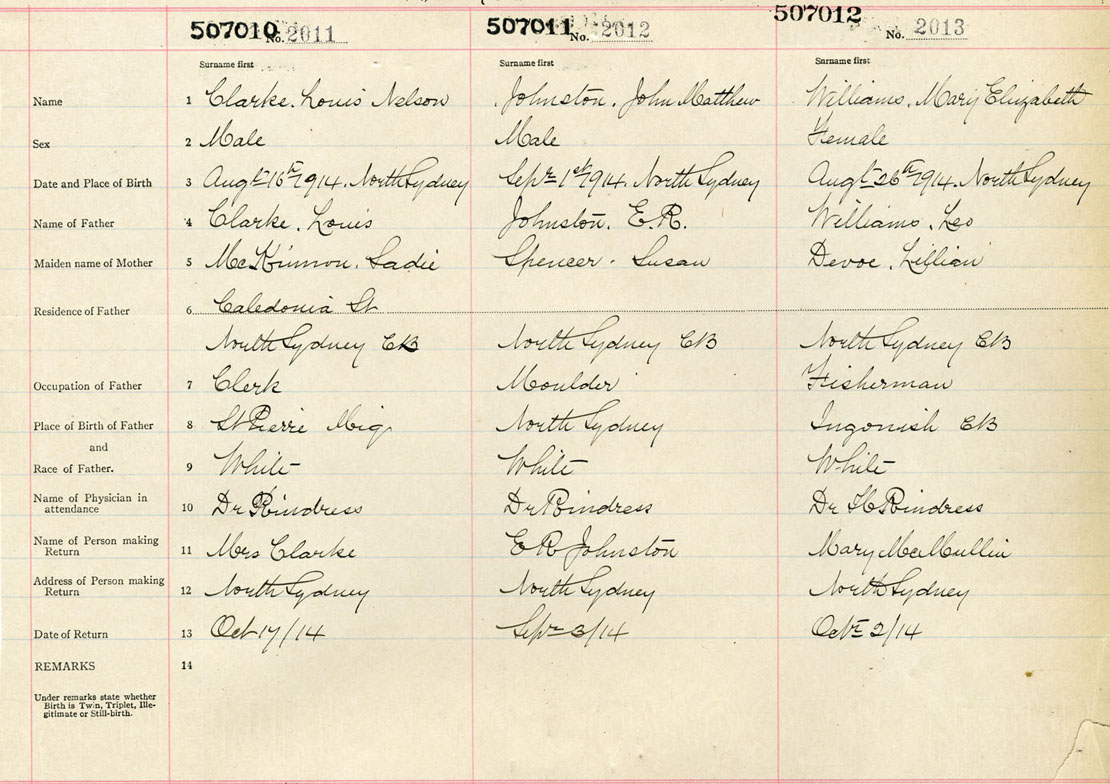 507010 No. 2011 507011 No. 2012 507012 No. 2013
Surname first Surname first Surname first
Name 1 Clarke. Louis Nelson Johnston, John Matthew Williams, Mary Elizabeth
Sex 2 Male Male Female
Date and Place of Birth 3 Augt 16th 1914. North Sydney Sepr 1st 1914. North Sydney Augt 26th 1914. North Sydney
Name of Father 4 Clarke, Louis Johnston, E.R. Williams, Leo
Maiden name of Mother 5 McKinnon, Sadie Spencer. Susan Devoe, Lillian
Residence of Father 6 Caledonia St
North Sydney CB North Sydney CB North Sydney CB
Occupation of Father 7 Clerk Moulder Fisherman
Place of Birth of Father 8 St Pierre Miq North Sydney Ingonish CB
and
Race of Father. 9 White White White
Name of Physician in
attendance 10 Dr Rindress Dr Rindress Dr Rindress
Name of Person making
Return 11 Mrs Clarke E R Johnston Mary McMullin
Address of Person making
Return 12 North Sydney North Sydney North Sydney
Date of Return 13 Oct 17/14 Sepr 3/14 Octr 2/14
REMARKS 14
Under remarks state whether
Birth is Twin, Triplet, Ille-
gitimate or Still-birth.